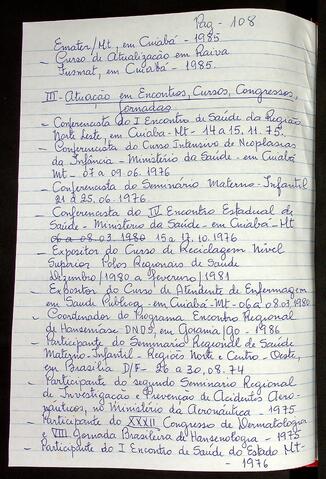 Pag - 108
Emater/Mt, em Cuiabá - 1985
- Curso de Atualização em Raiva
Fusmat, em Cuiabá - 1985.
III - Atuação em Encontros, Cursos, Congressos,
Jornadas
- Conferencista do I Encontro de Saúde da Região
Norte Leste, em Cuiaba - Mt - 14 a 15.11.75.
- Conferencista do Curso Intensivo de Neoplasias
da Infância - Ministério da Saúde - em Cuiabá
Mt - 07 a 09.06.1976
- Conferencista do Seminário Materno-Infantil
21 a 25.06.1976
- Conferencista do IV Encontro Estadual de
Saúde - Ministério da Saúde - em Cuiabá - Mt
06 a 08.03.1980 15 a 17.10.1976
- Expositor do Curso de Reciclagem Nível
Superior Polos Regionais de Saúde
Dezembro/1980 a fevereiro/1981
- Expositor do Curso de Atendente de Enfermagem
em Saúde Pública - em Cuiabá - Mt - 06 a 08.03.1980
- Coordenador do Programa Encontro Regional
de Hanseníase DNDS, em Goiania/go - 1986
- Participante do Seminario Regional de Saúde
Materno-Infantil - Regiões Norte e Centro-Oeste,
em Brasília D/F - 26 a 30.08.74
- Participante do segundo Seminário Regional
de Investigação e Prevenção de Acidentes Aero-
náuticos, no Ministério da Aeronáutica - 1975
- Participante do XXXII Congresso de Dermatologia
e VIII Jornada Brasileira de Hansenologia - 1975
- Participante do I Encontro de Saúde do Estado Mt-
- 1976